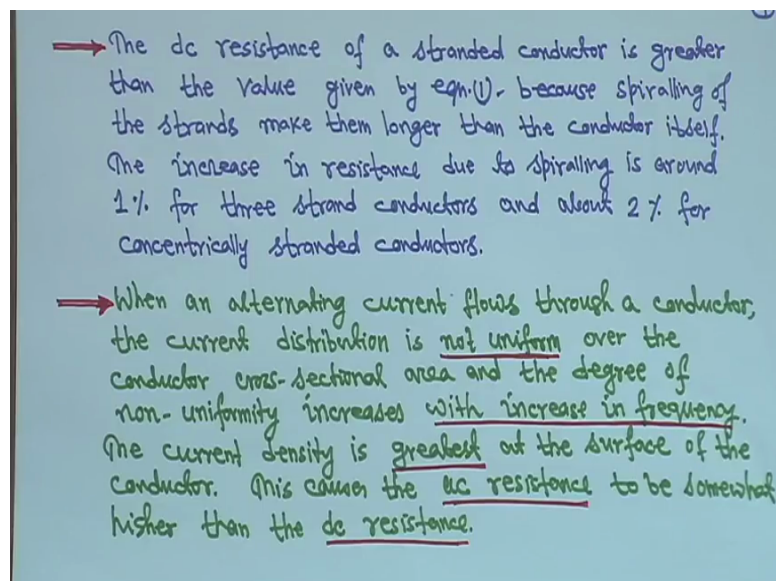 The dc resistance of a stranded conductor is greater
than the value given by eqn.(1)- because spiralling of
the strands make them longer than the conductor itself.
The increase in resistance due to spiralling is around
1% for three strand conductors and about 2% for
concentrically stranded conductors.
When an alternating current flows through a conductor,
the current distribution is not uniform over the
conductor cross-sectional area and the degree of
non-uniformity increases with increase in frequency.
The current density is greatest at the surface of the
conductor. This causes the ac resistance to be somewhat
higher than the dc resistance.